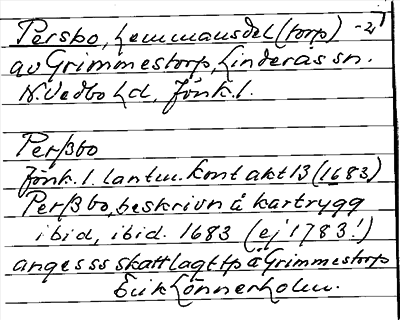 Persbo, hemmansdel (torp) -27
av Grimmestorp, Linderås sn.
N. Vedbo hd, Jönk. l.
Perßbo
Jönk. l. lantm. kont akt 13 (1683)
Perßbo, beskrivn å kartrygg
ibid, ibid. 1683 (ej 1783!)
anges ss skattlagt tp å Grimmestorp
Erik Lönnerholm.